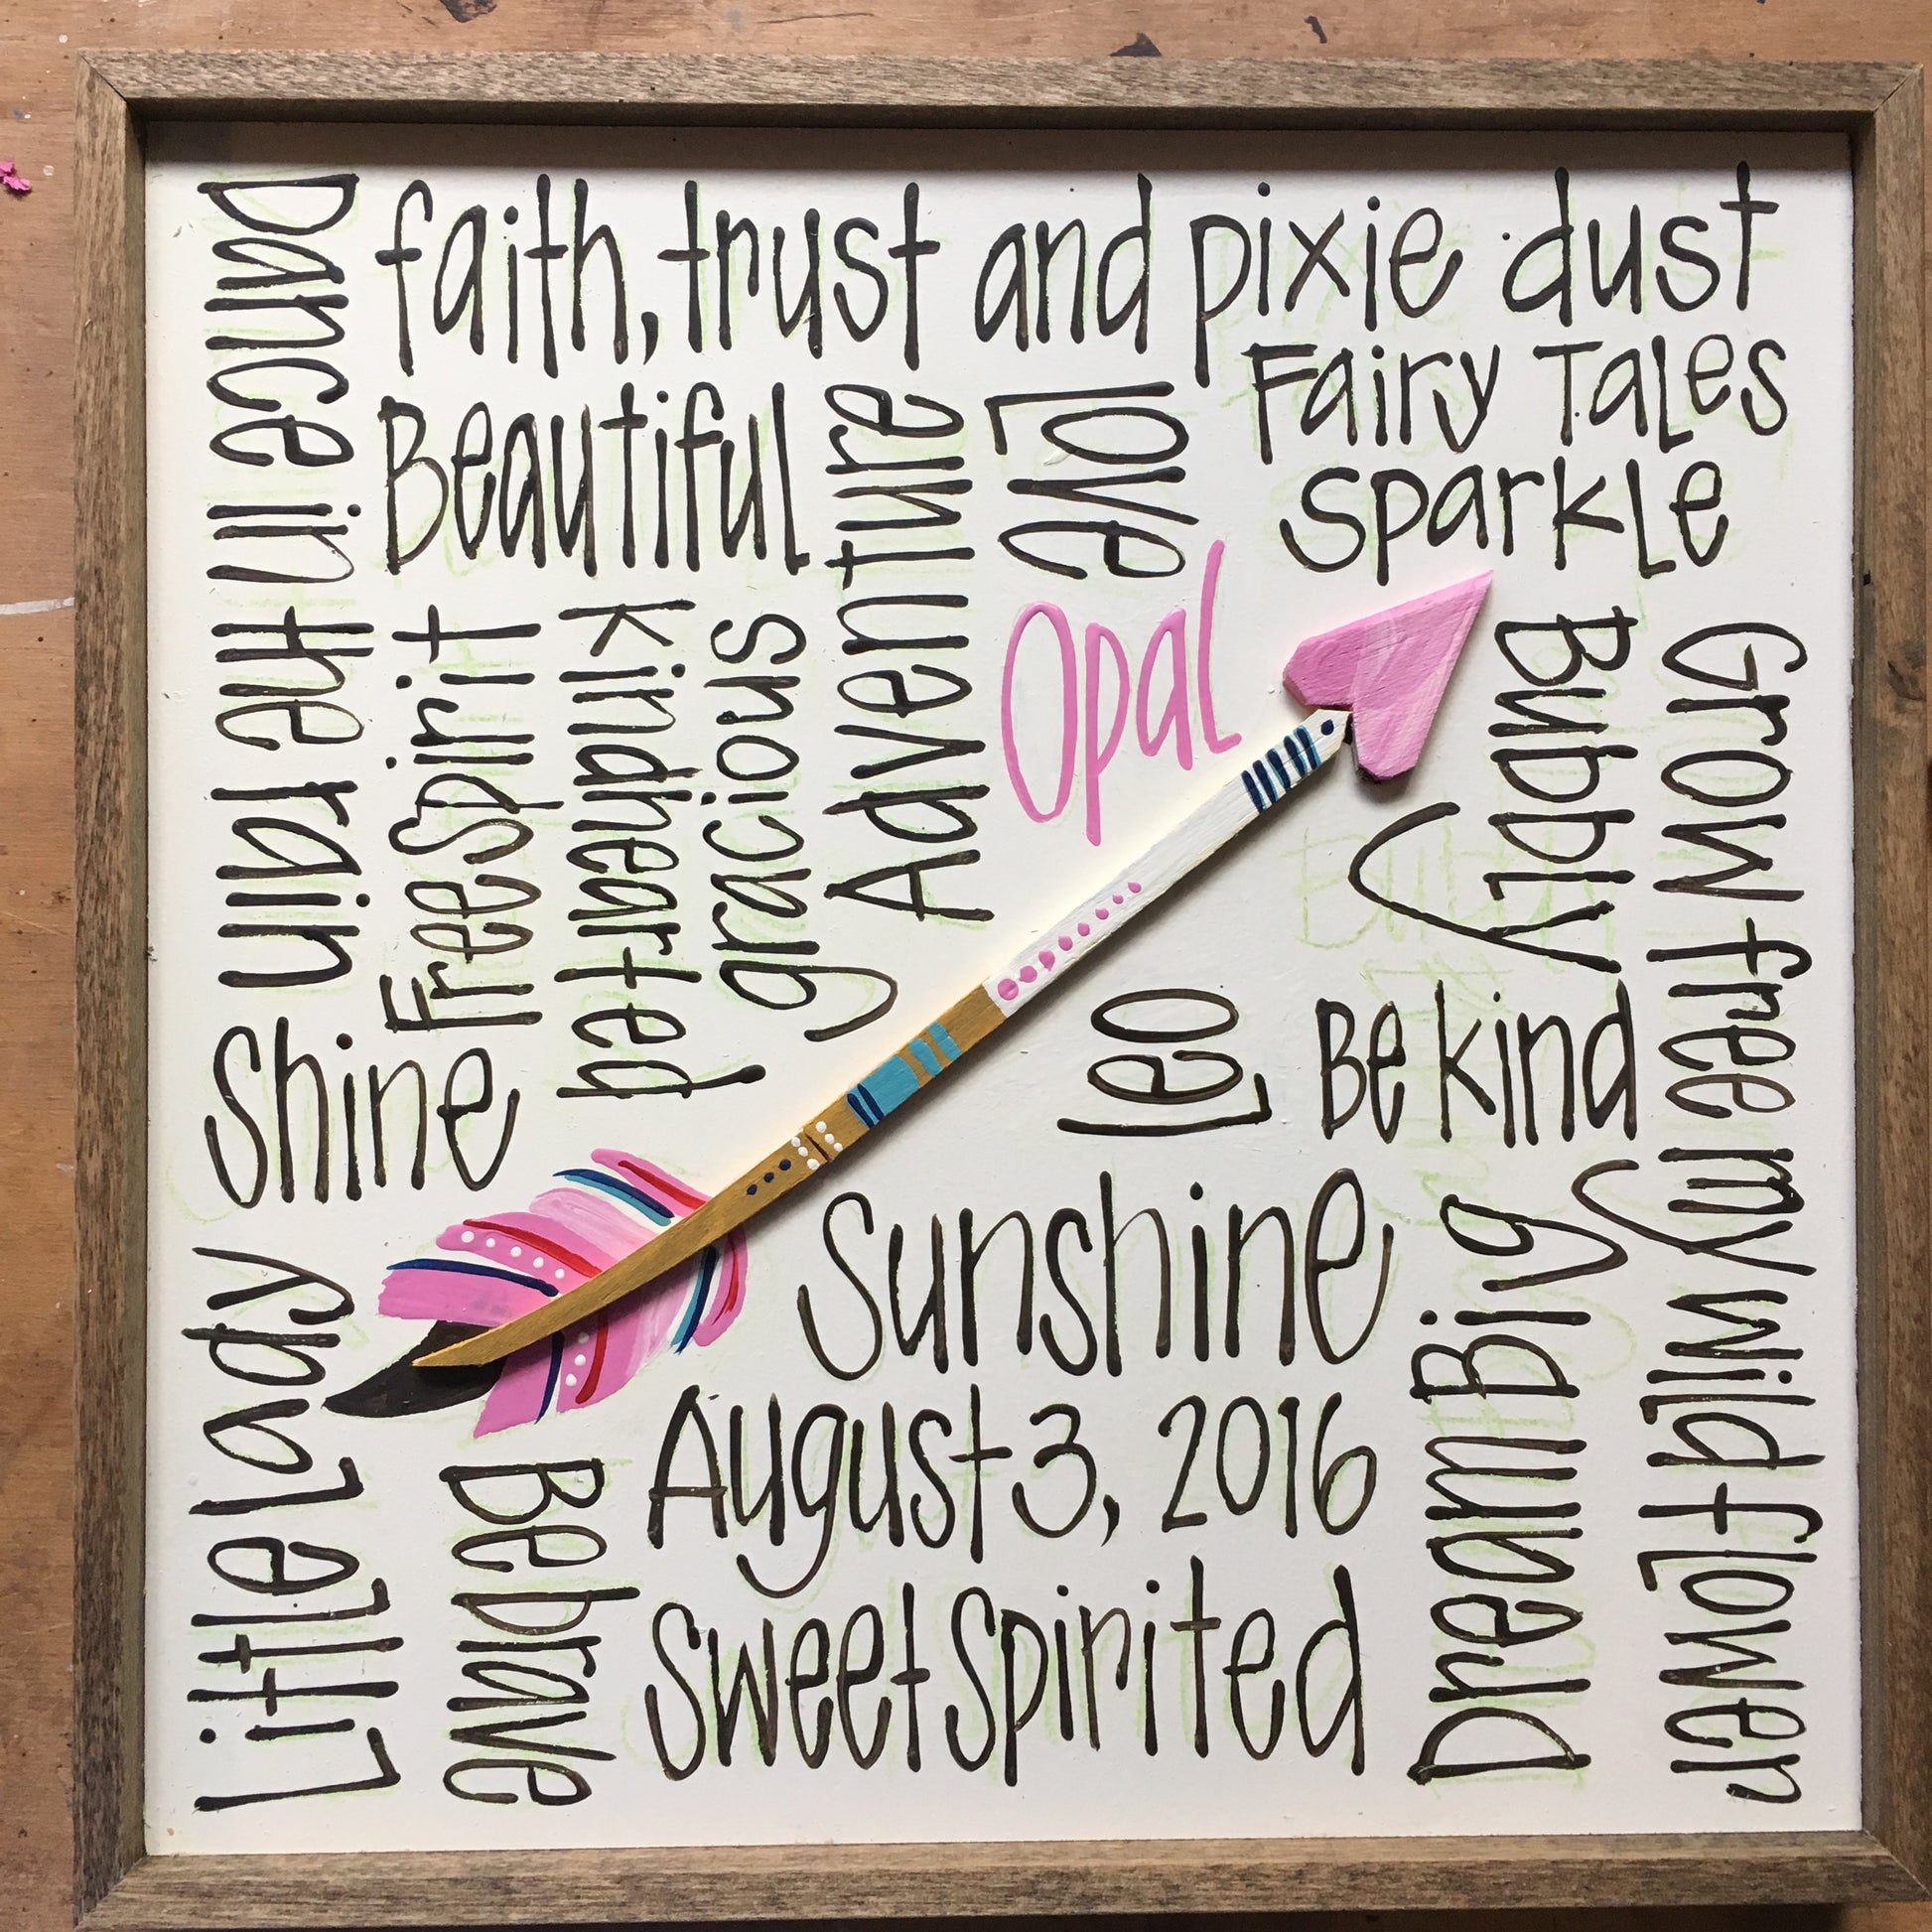 Dance in the rain
faith, trust and pixie dust
Fairy Tales
Sparkle
Beautiful
Adventure
love
Opal
Free Spirit
kindhearted
gracious
Bubbly
Grow free my wild flower
Shine
Leo
Be kind
Sunshine
Little Lady
Be brave
August 3, 2016
Sweet Spirited
Dream Big